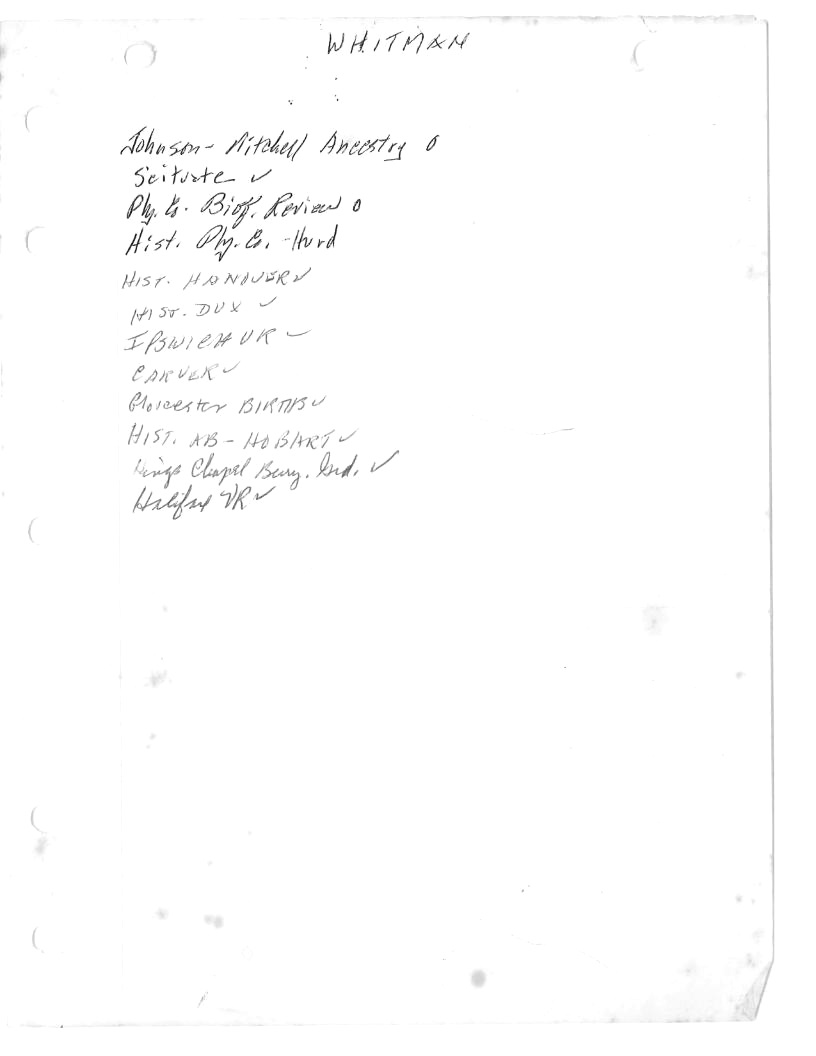 WHITMAN
Johnson - Mitchell Ancestry 0
Scituate ✓
Ply. Co. Biog. Review 0
Hist. Ply. Co. - Hurd
HIST. HANOVER ✓
HIST. DUX ✓
IPSWICH VR ✓
CARVER ✓
Gloucester BIRTHS ✓
HIST. AB - HOBART ✓
Kings Chapel Bury. Grd. ✓
Halifax VR ✓